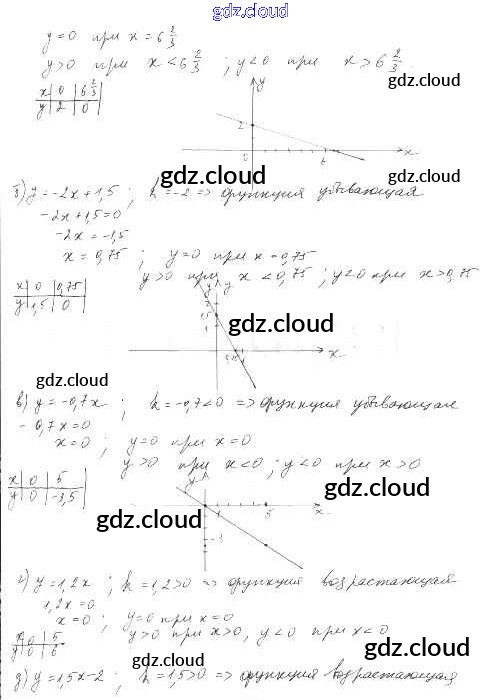 gdz.cloud
y=0 при x=6 2/3
y>0 при x<6 2/3 ; y<0 при x>6 2/3
gdz.cloud
x | 0 | 6 2/3
y | 2 | 0
gdz.cloud
y
2
0 6 x
gdz.cloud
б) y=-2x+1,5 ; k=-2 => функция убывающая
-2x+1,5=0
-2x=-1,5
x=0,75 ; y=0 при x=0,75
gdz.cloud
y>0 при x<0,75 ; y<0 при x>0,75
x | 0 | 0,75
y | 1,5 | 0
y
1,5
gdz.cloud
x
gdz.cloud
в) y=-0,7x ; k=-0,7<0 => функция убывающая
-0,7x=0
x=0 ; y=0 при x=0
gdz.cloud
y>0 при x<0 ; y<0 при x>0
x | 0 | 5
y | 0 | -3,5
gdz.cloud
y
1 5 x
gdz.cloud
-1
г) y=1,2x ; k=1,2>0 => функция возрастающая
gdz.cloud
1,2x=0
x=0 ; y=0 при x=0
y>0 при x>0, y<0 при x<0
x | 0 | 5
y | 0 | 6
gdz.cloud
gdz.cloud
д) y=1,5x-2 ; k=1,5>0 => функция возрастающая
gdz.cloud